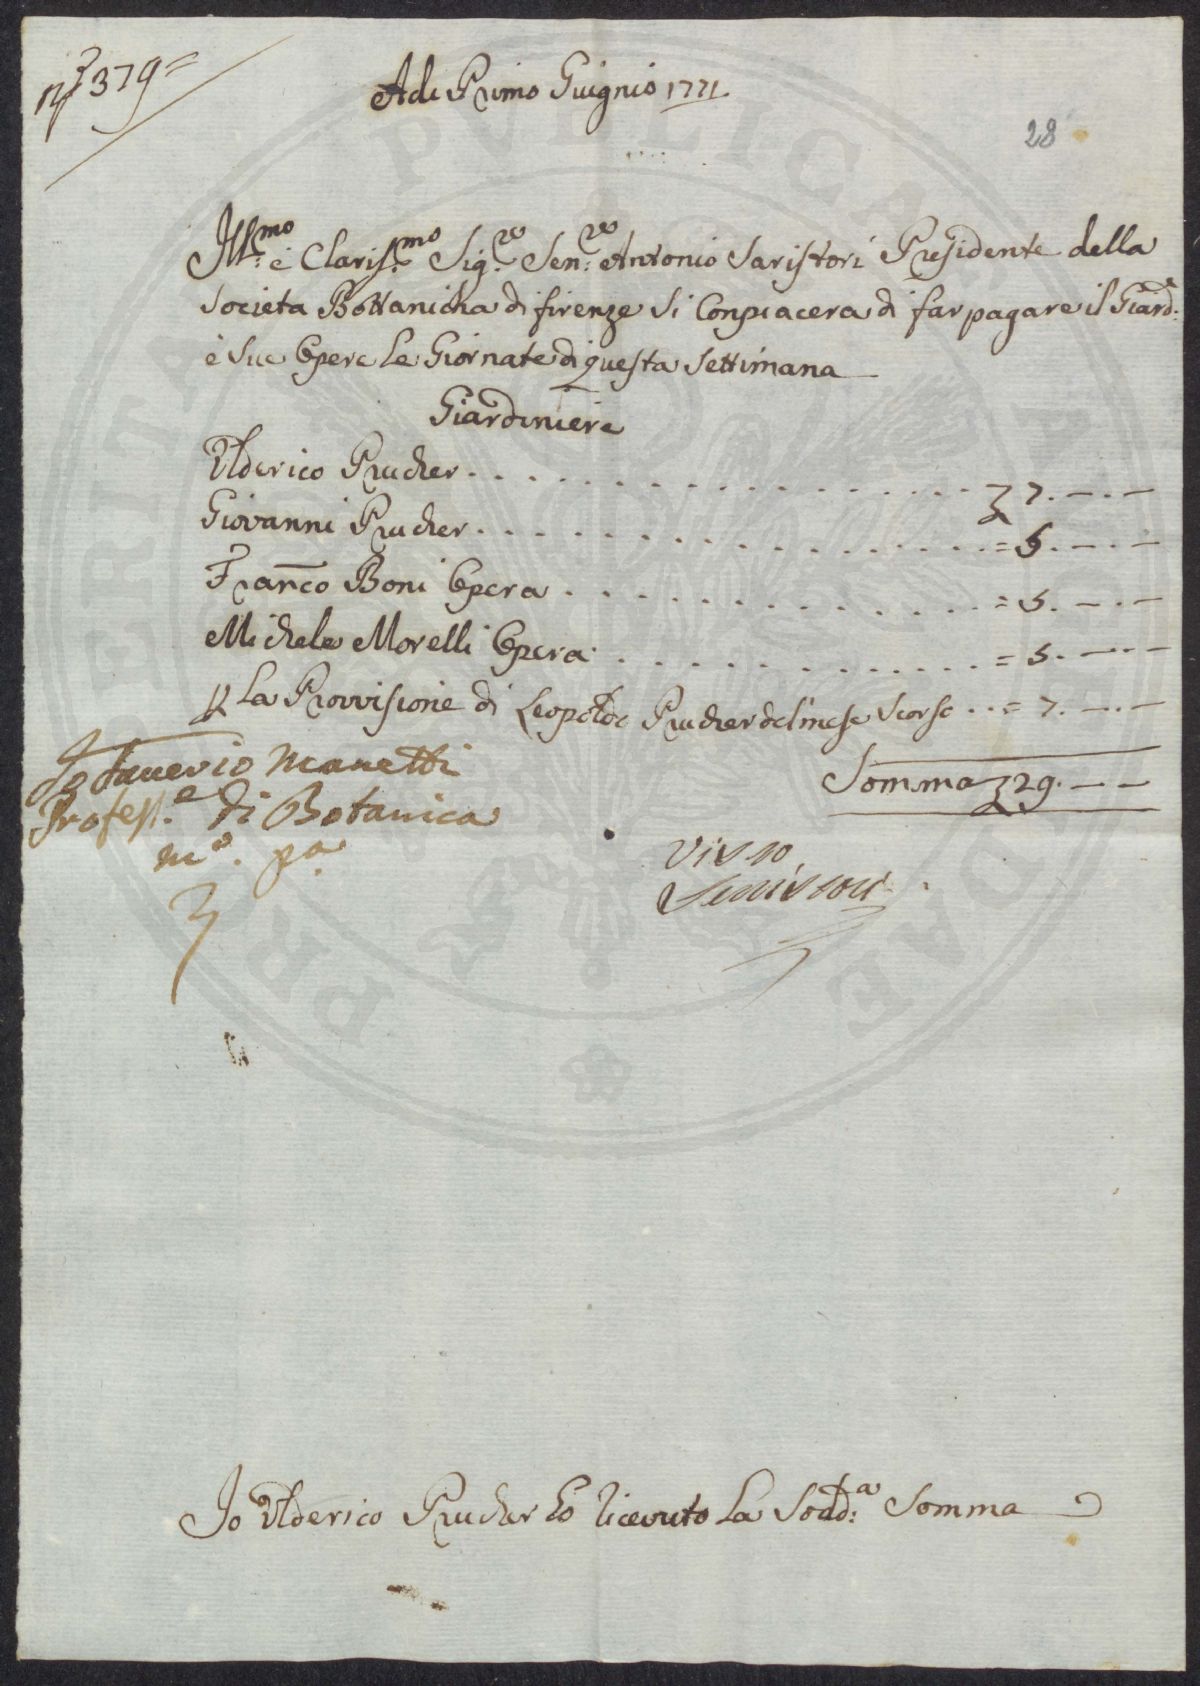 N.° 379=
Adi Primo Guignio 1771
28
Ill:mo e Claris:mo Sig:re Sen:re Antonio Saristori Presidente della
Societa Bottanicha di firenze Si Conpiacera di far pagare il Giard:e
e Sue Opere Le Giornate di questa Settimana
Giardiniere
Ulderico Prucher 7.—.—
Giovanni Prucher = 5.—.—
Fran͠co Boni Opera = 5.—.—
Michele Morelli Opera = 5.—.—
p La Provvisione di Leopoldo Prucher del mese Scorso = 7.—.—
Somma 29.——
Io Saverio Manetti
Profess.e di Botanica
m.o p.a
Visto
Serristori
Io Ulderico Prucher ho ricevuto La Sodd:a Somma
PVBLICAE
PROSPERITATI